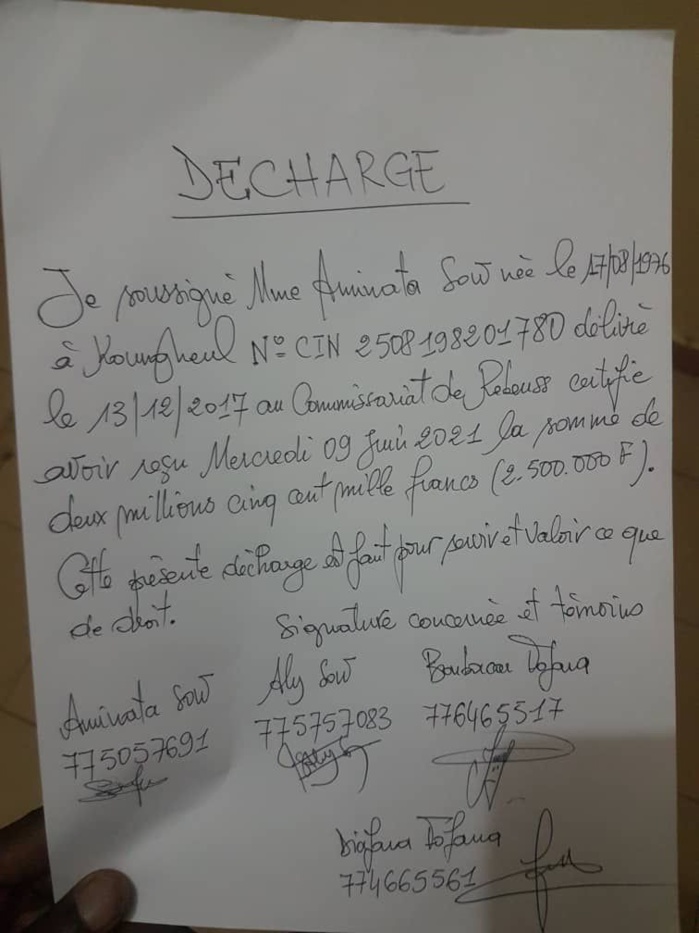 DECHARGE
Je soussigné Mme Aminata Sow née le 17/08/1976
à Koungheul N° CIN 2508198201780 délivré
le 13/12/2017 au Commissariat de Rebeuss certifie
avoir reçu Mercredi 09 Juin 2021 la somme de
deux millions cinq cent mille francs (2.500.000 F).
Cette présente décharge est fait pour servir et valoir ce que
de droit.
Signature concernée et témoins
Aminata Sow
775057691
Aly Sow
775757083
Boubacar Tofana
776465517
Tofana
774665561